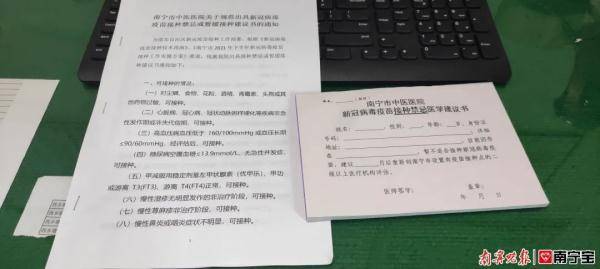 南宁市中医医院关于规范出具新冠病毒
疫苗接种禁忌或暂缓接种建议书的通知
一、可接种的情况:
(一)对尘螨、食物、花粉、酒精、青霉素、头孢或其
他药物过敏,可接种。
(二)心脏病、冠心病、冠状动脉粥样硬化等疾病非急
性发作期或非失代偿期,可接种。
(三)高血压病血压低于 160/100mmHg 或血压长期
≤90/60mmHg,经评估后,可接种。
(四)糖尿病空腹血糖≤13.9mmol/L、无急性并发症,
可接种。
(五)甲减服用稳定剂量左甲状腺素(优甲乐),甲功
或游离 T3(FT3)、游离 T4(FT4)正常,可接种。
(六)慢性湿疹无明显发作的非治疗阶段,可接种。
(七)慢性荨麻疹非治疗阶段,可接种。
(八)慢性鼻炎或咽炎症状不明显,可接种。
1
南宁市中医医院
新冠病毒疫苗接种禁忌医学建议书
姓名: 性别: 年龄: 岁,身份证
号码: 体检
本地住址:
因 暂不适合接种新冠病毒
疫苗,建议 月后重新到南宁市设置有疫苗接种点的二
级以上医疗机构评估。
医师签字: 盖章:
年 月 日
南国早报
南宁宝